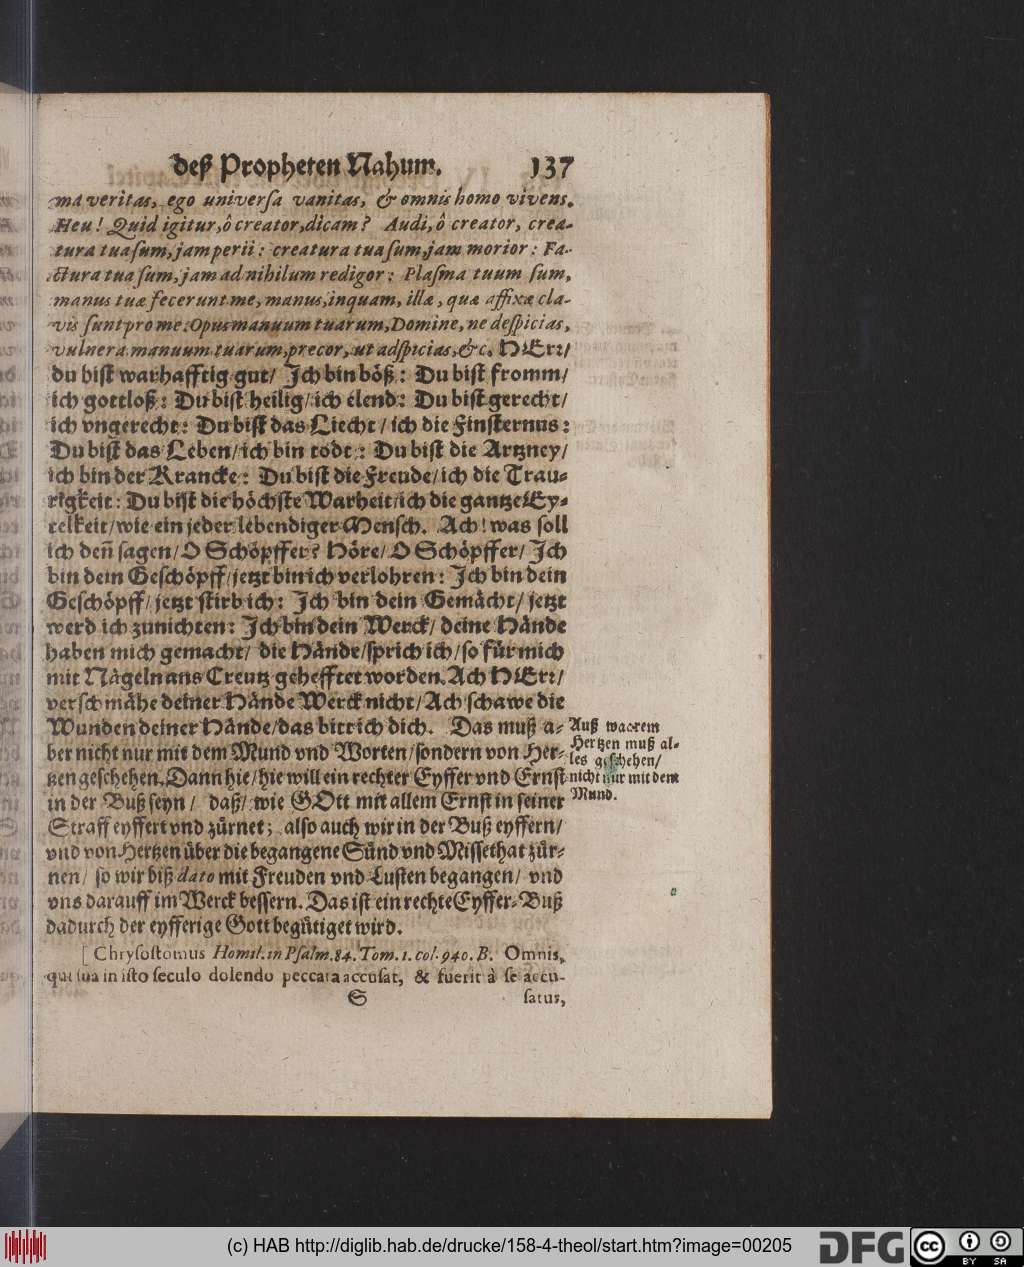 deß Propheten Nahum. 137
ma veritas, ego universa vanitas, & omnis homo vivens.
Heu! Quid igitur, ô creator, dicam? Audi, ô creator, crea-
tura tua sum, jam perii: creatura tua sum, jam morior: Fa-
ctura tua sum, jam ad nihilum redigor: Plasma tuum sum,
manus tuæ fecerunt me, manus, inquam, illæ, quæ affixæ cla-
vis sunt pro me: Opus manuum tuarum, Domine, ne despicias,
vulnera manuum tuarum, precor, ut adspicias, &c. HErr/
du bist warhafftig gut/ Ich bin böß: Du bist fromm/
ich gottloß: Du bist heilig/ ich elend: Du bist gerecht/
ich vngerecht: Du bist das Liecht/ ich die Finsternus:
Du bist das Leben/ ich bin todt: Du bist die Artzney/
ich bin der Krancke: Du bist die Freude/ ich die Trau-
rigkeit: Du bist die höchste Warheit/ ich die gantze Ey-
telkeit/ wie ein jeder lebendiger Mensch. Ach! was soll
ich deñ sagen/ O Schöpffer? Höre/ O Schöpffer/ Ich
bin dein Geschöpff/ jetzt bin ich verlohren: Ich bin dein
Geschöpff/ jetzt stirb ich: Ich bin dein Gemächt/ jetzt
werd ich zunichten: Ich bin dein Werck/ deine Hände
haben mich gemacht/ die Hände/ sprich ich/ so für mich
mit Nägeln ans Creutz gehefftet worden. Ach HErr/
verschmähe deiner Hände Werck nicht/ Ach schawe die
Wunden deiner Hände/ das bitt ich dich. Das muß a-
ber nicht nur mit dem Mund vnd Worten/ sondern von Her-
tzen geschehen. Dann hie/ hie will ein rechter Eyffer vnd Ernst
in der Buß seyn/ daß/ wie GOtt mit allem Ernst in seiner
Straff eyffert vnd zürnet; also auch wir in der Buß eyffern/
vnd von Hertzen über die begangene Sünd vnd Missethat zür-
nen/ so wir biß dato mit Freuden vnd Lusten begangen/ vnd
vns darauff im Werck bessern. Das ist ein rechte Eyffer-Buß
dadurch der eyfferige Gott begütiget wird.
Auß waorem
Hertzen muß al-
les geschehen/
nicht nur mit dem
Mund.
[Chrysostomus Homil. in Psalm. 84. Tom. 1. col. 940. B. Omnis,
qui sua in isto seculo dolendo peccata accusat, & fuerit à se accu-
S satus,
(c) HAB http://diglib.hab.de/drucke/158-4-theol/start.htm?image=00205
DFG
cc BY SA